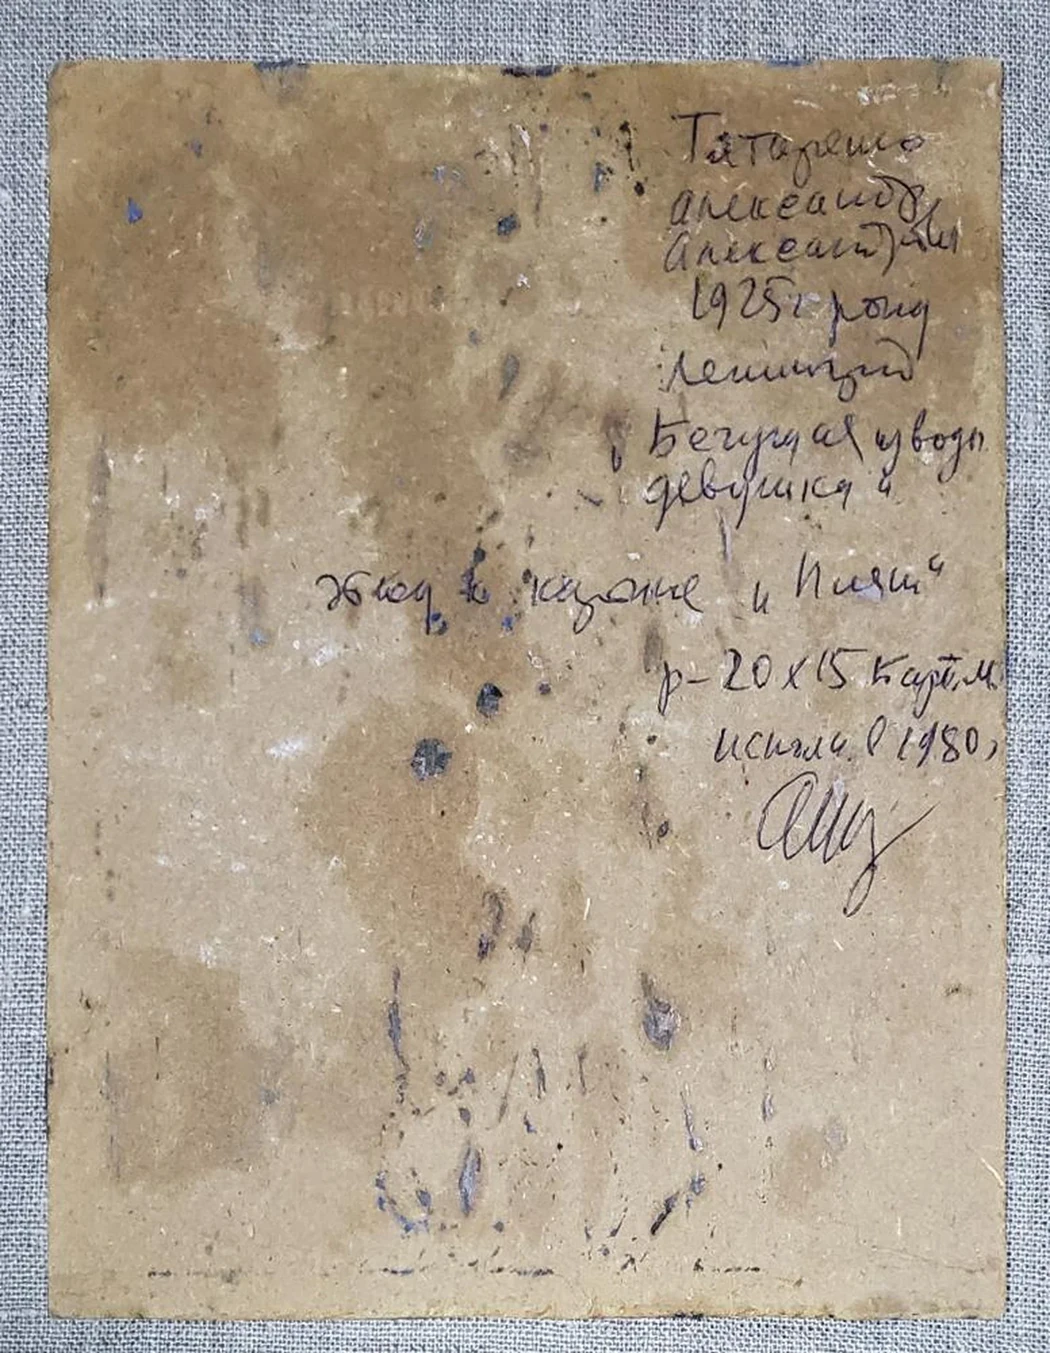 Татаренко
Александр
Александрович
1925г рожд
Ленинград
Бегущая из воды
девушка "
Этюд к картине " Пляж "
р-20х15 Карт. м.
исполн. в 1980,